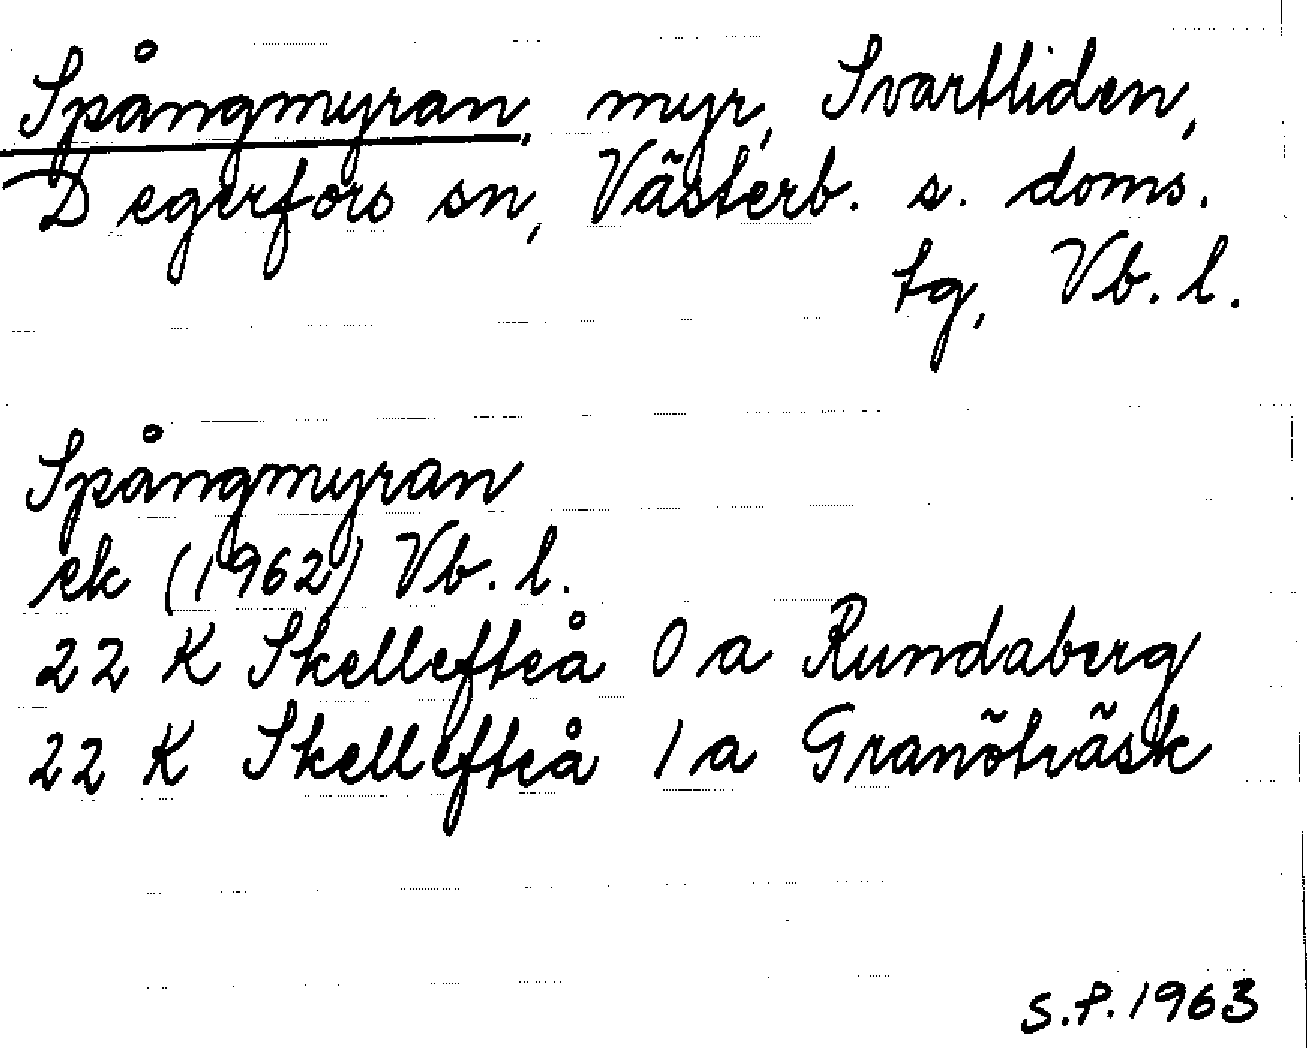 Spångmyran, myr, Svartliden,
Degerfors sn, Västerb. s. doms.
tg, Vb. l.
Spångmyran
ek (1962) Vb. l.
22 K Skellefteå 0 a Rundaberg
22 K Skellefteå 1 a Granöträsk
S.P. 1963